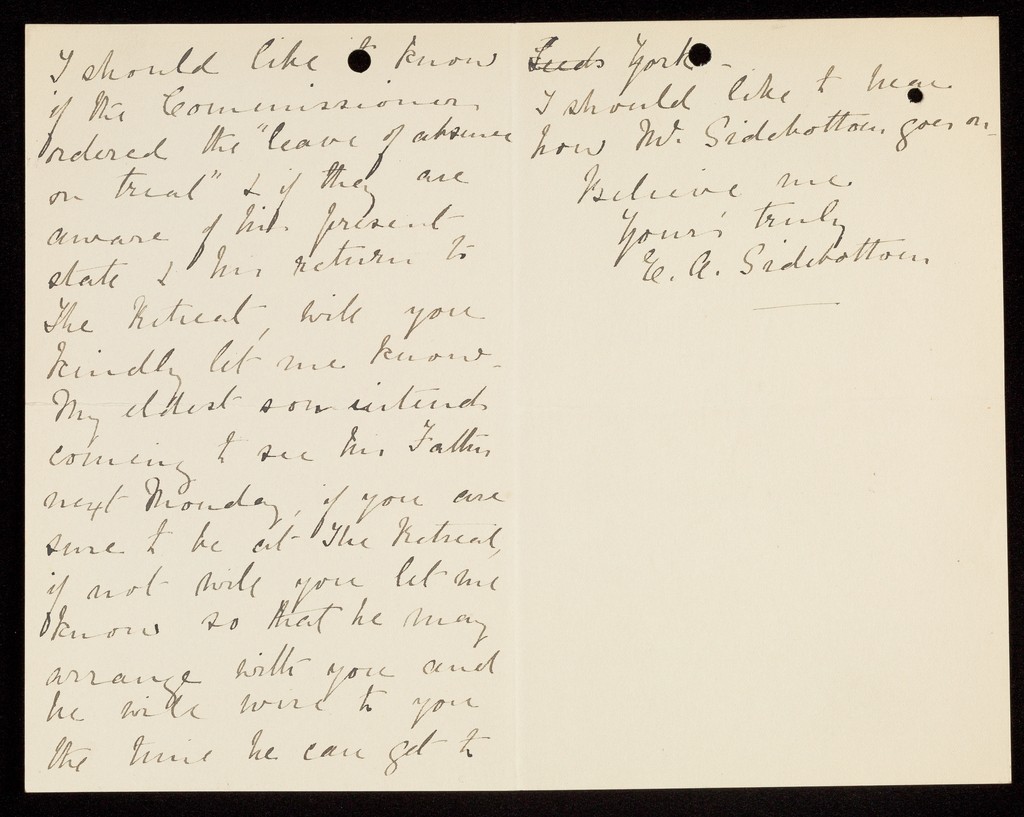 I should like to know
if the Commissioners
ordered the "leave of absence
on trial" & if they are
aware of his present
state & his return to
The Retreat, will you
kindly let me know.
My eldest son intends
coming to see his Father
next Monday, if you are
sure to be at The Retreat,
if not will you let me
know so that he may
arrange with you and
he will wire to you
the time he can get to
Leeds York -
I should like to hear
how Mr. Sidebottom goes on.
Believe me
Your's truly
E. A. Sidebottom